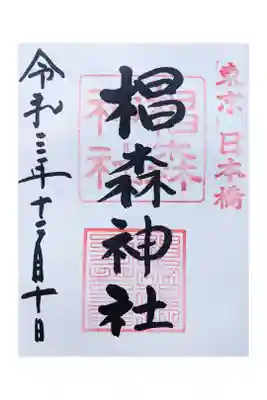 東京 日本橋
椙森
神社
椙森神社
令和三年十二月十日